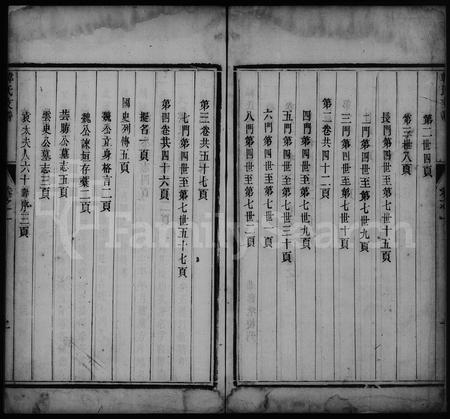 第二世四頁
第三世八頁
長門第四世至第七世十五頁
二門第四世至第七世九頁
三門第四世至第七世十頁
第二卷共四十二頁
四門第四世至第七世九頁
五門第四世至第七世三十頁
六門第四世至第七世六頁
八門第四世至第七世二頁
第三卷共五十七頁
七門第四世至第七世五十七頁
第四卷共四十六頁
挺省一頁
國史列傳五頁
魏公立身格言二頁
魏公諫垣存藁二頁
芸舫公墓志五頁
雲史公墓志三頁
袁太夫人六十壽序三頁
FamilySearch